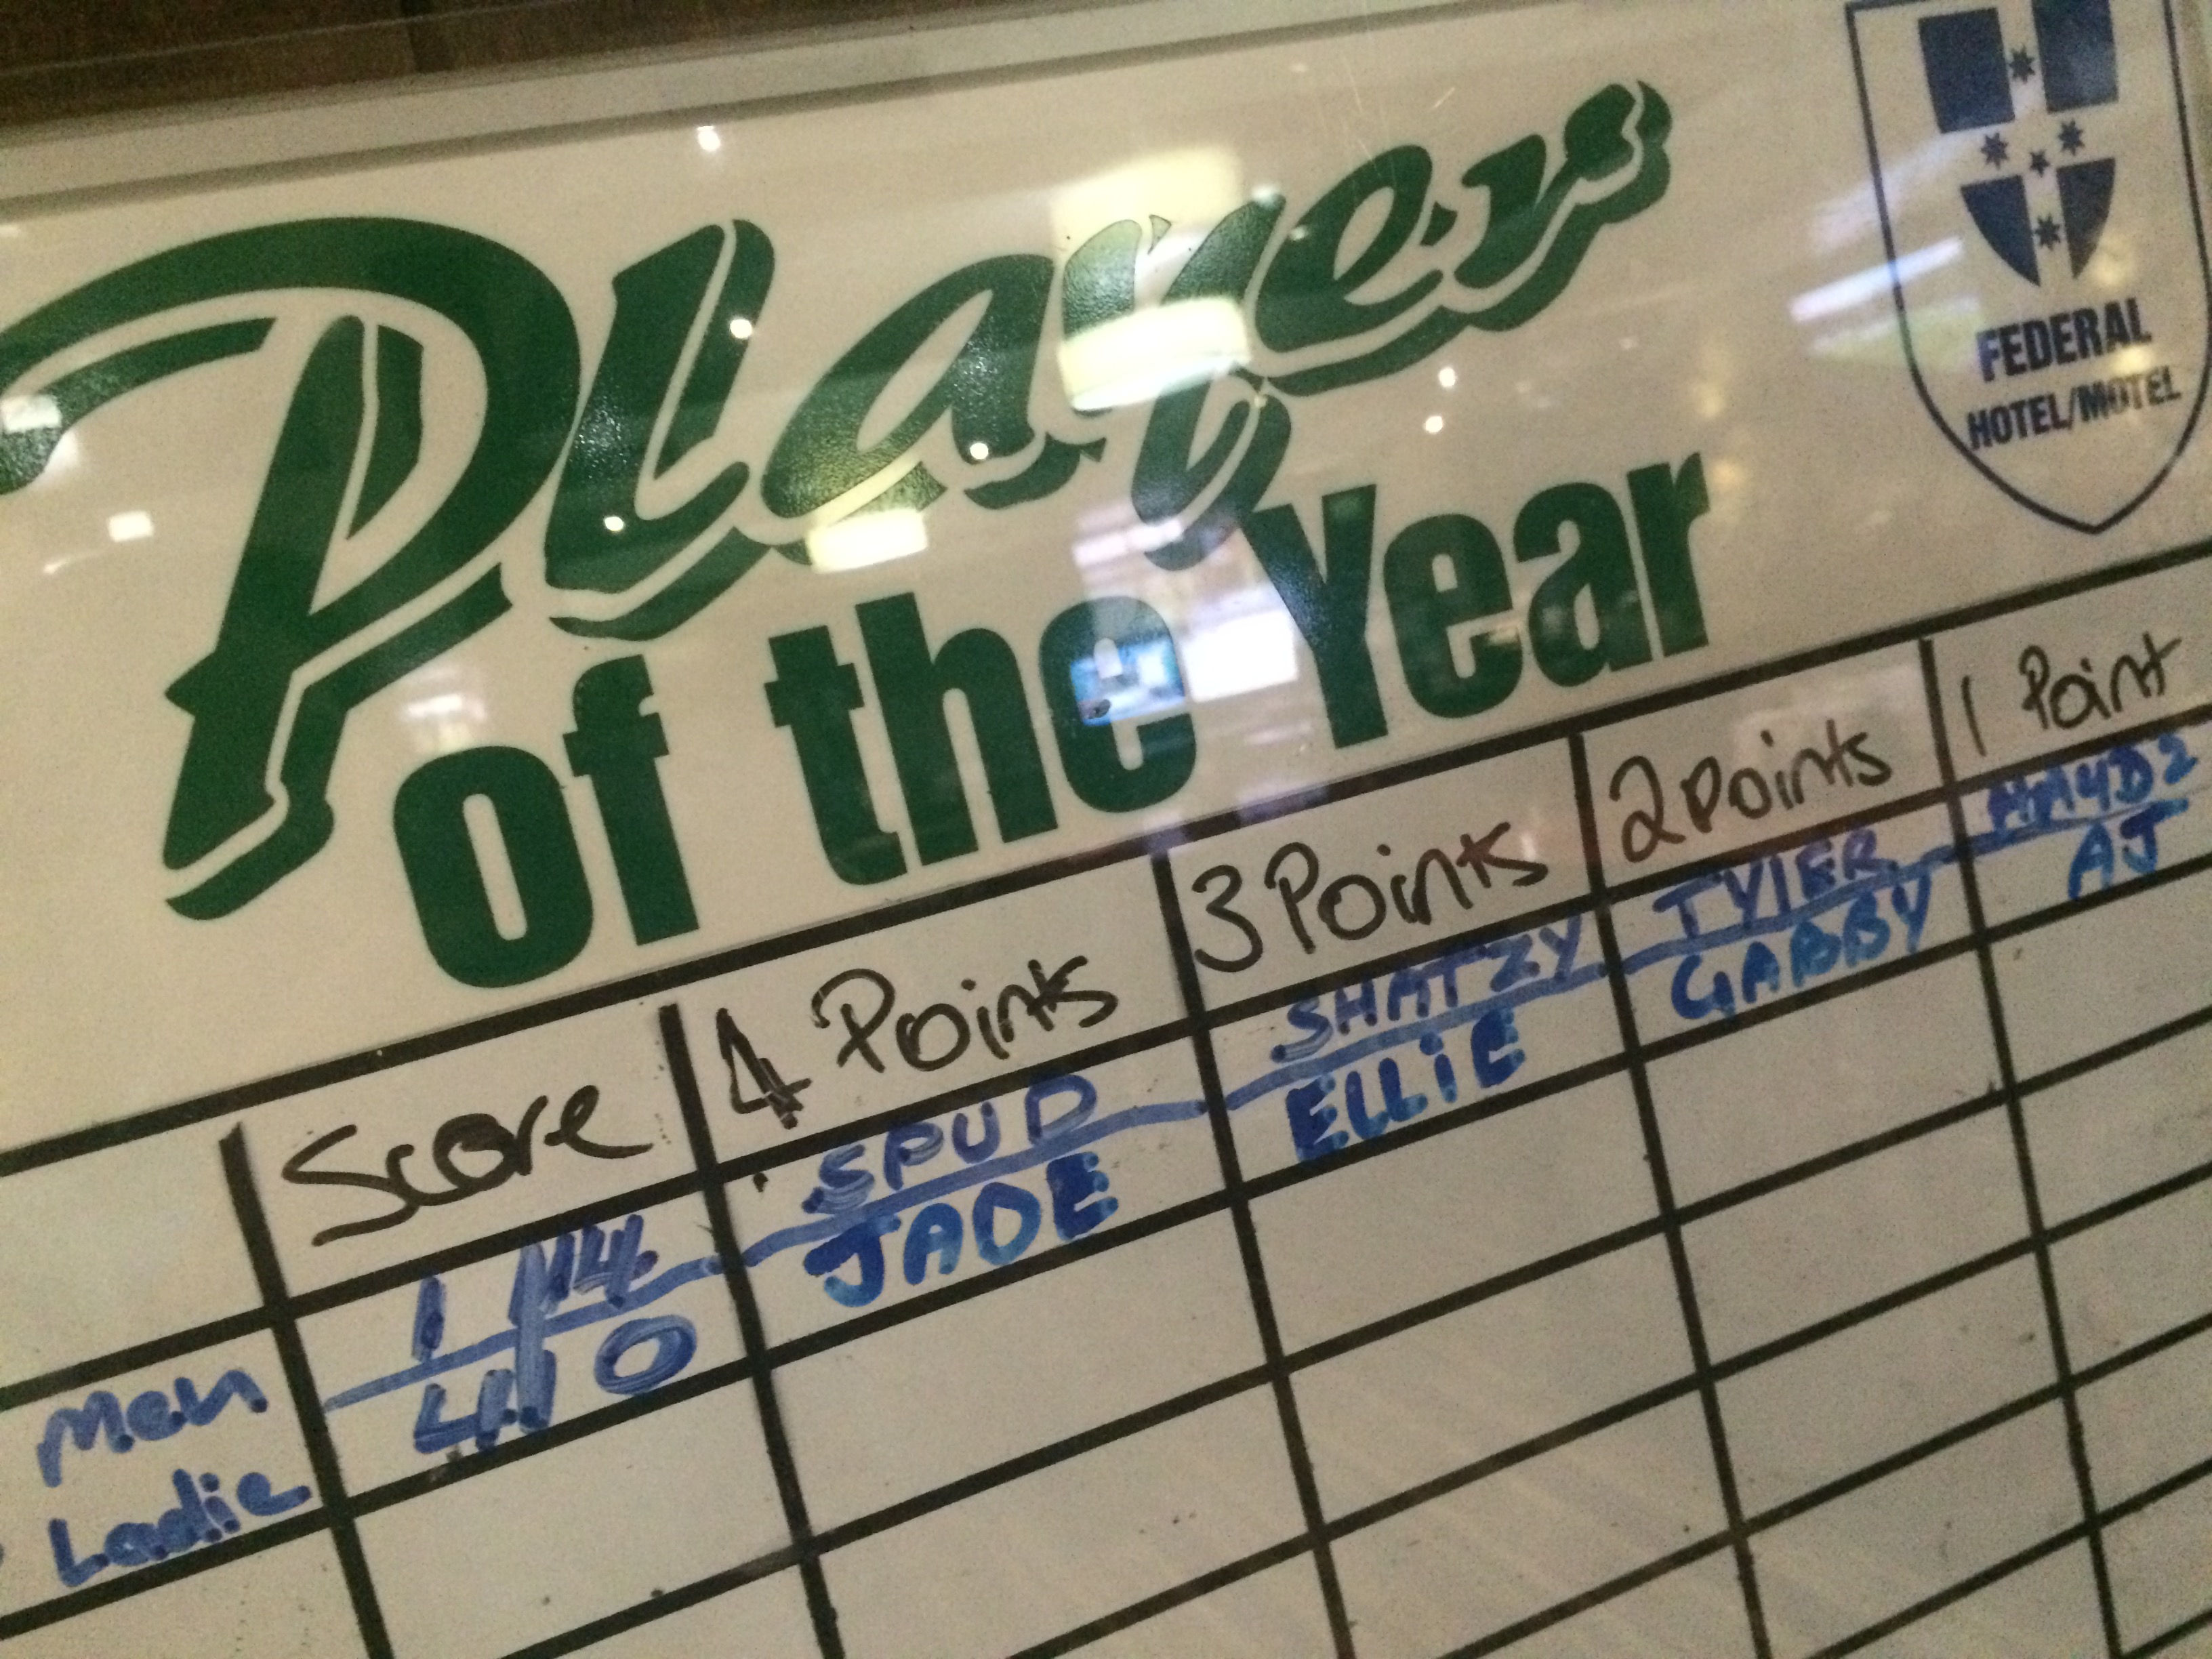 Player
of the Year
FEDERAL
HOTEL/MOTEL
Score 4 Points 3 Points 2 Points 1 Point
Men SPUD SHATZY TYLER
Ladie JADE ELLiE GABBY AJ